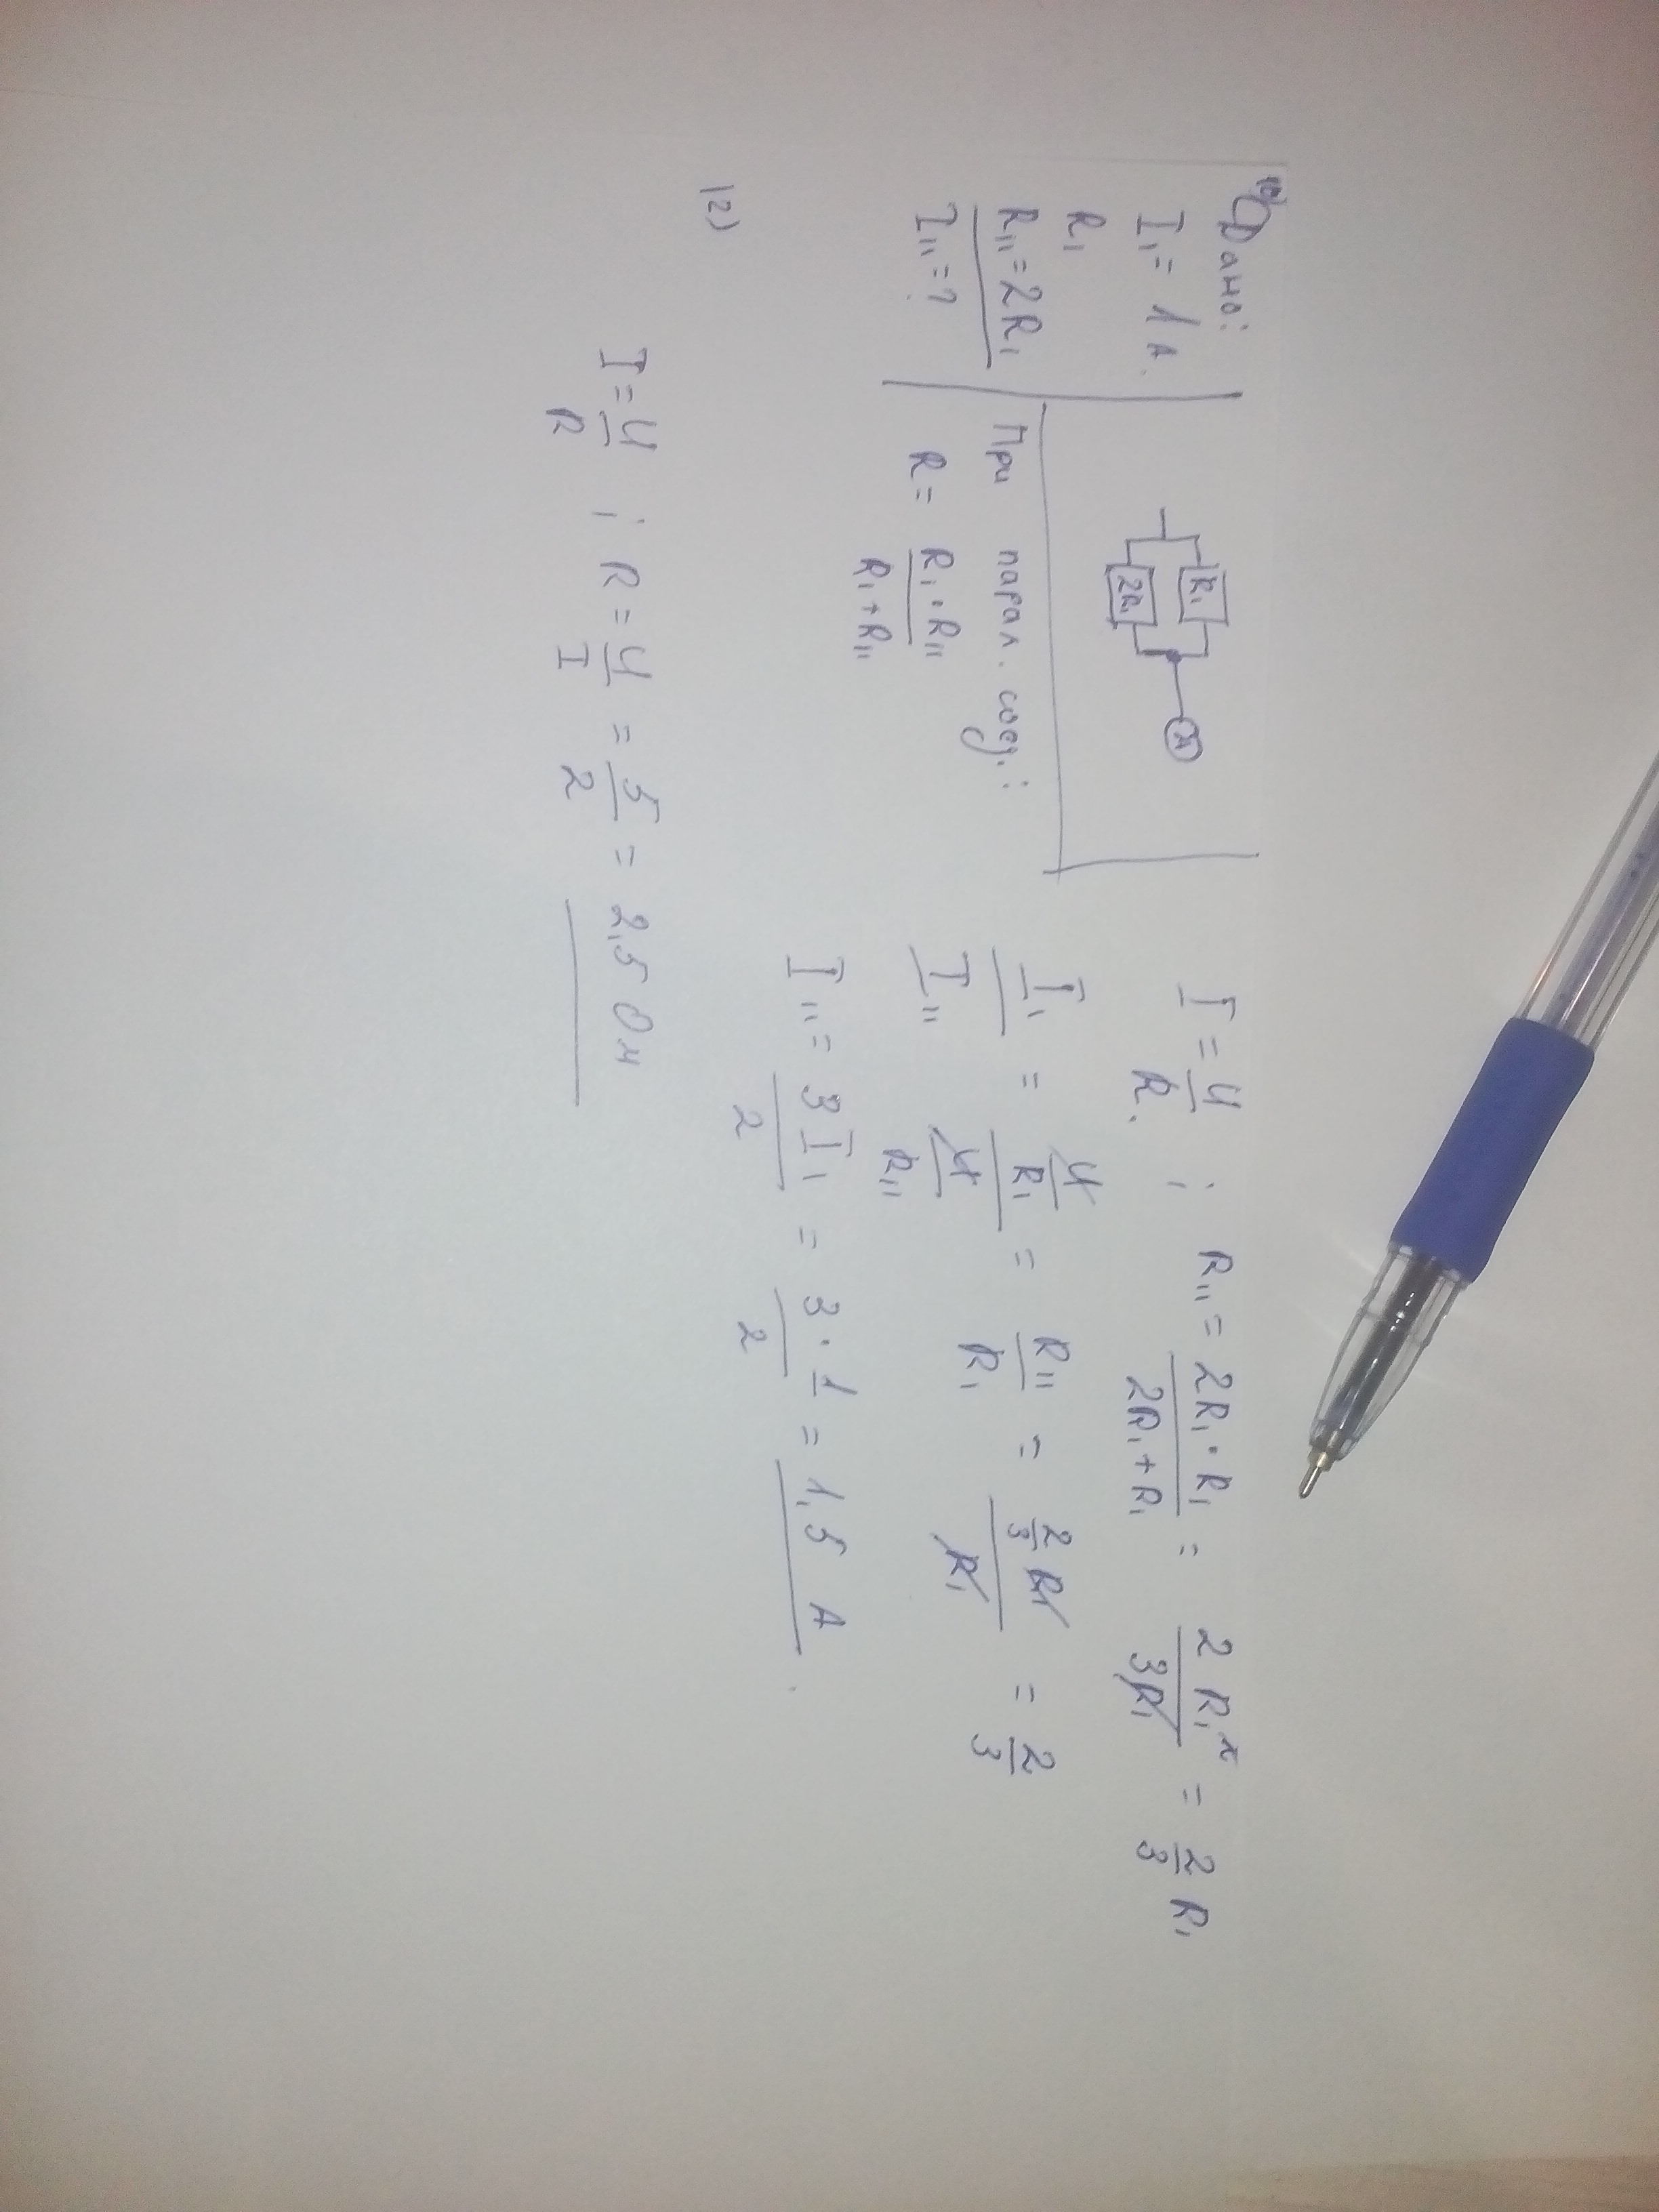 10) Дано:
I₁ = 1 А.
R₁
R₁₁ = 2R₁
I₁₁ = ?
R₁
2R₁
А
При парал. соед.:
R = R₁ · R₁₁ / R₁ + R₁₁
I = U / R ; R₁₁ = 2R₁ · R₁ / 2R₁ + R₁ = 2 R₁² / 3R₁ = 2/3 R₁
I₁ / I₁₁ = U/R₁ / U/R₁₁ = R₁₁ / R₁ = 2/3 R₁ / R₁ = 2/3
I₁₁ = 3 I₁ / 2 = 3 · 1 / 2 = 1,5 А
12)
I = U / R ; R = U / I = 5 / 2 = 2,5 Ом